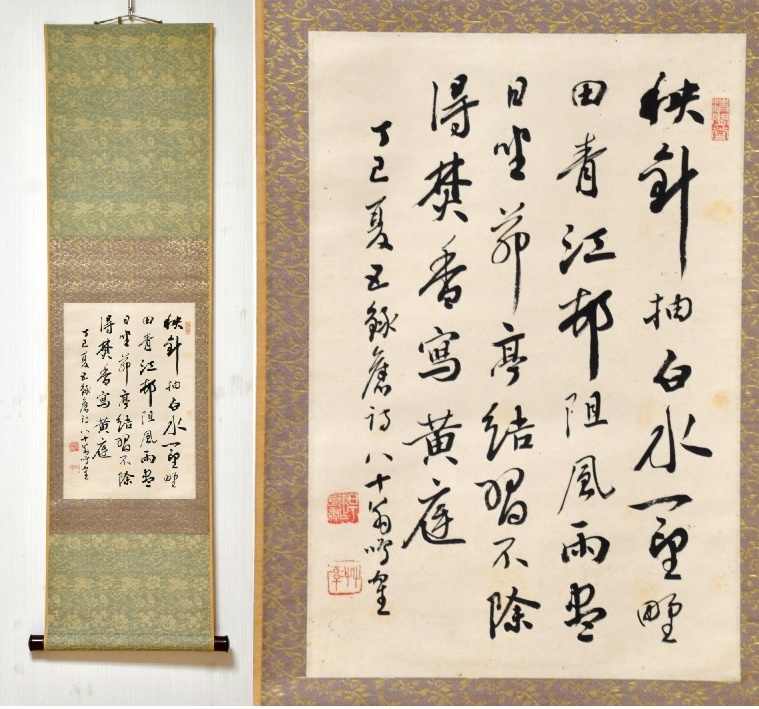 秧針抽白水一望野
田青江邨阻風雨盡
日坐茆亭結習不除
得焚香寫黃庭
丁巳夏五錄舊詩八十翁鳴寉